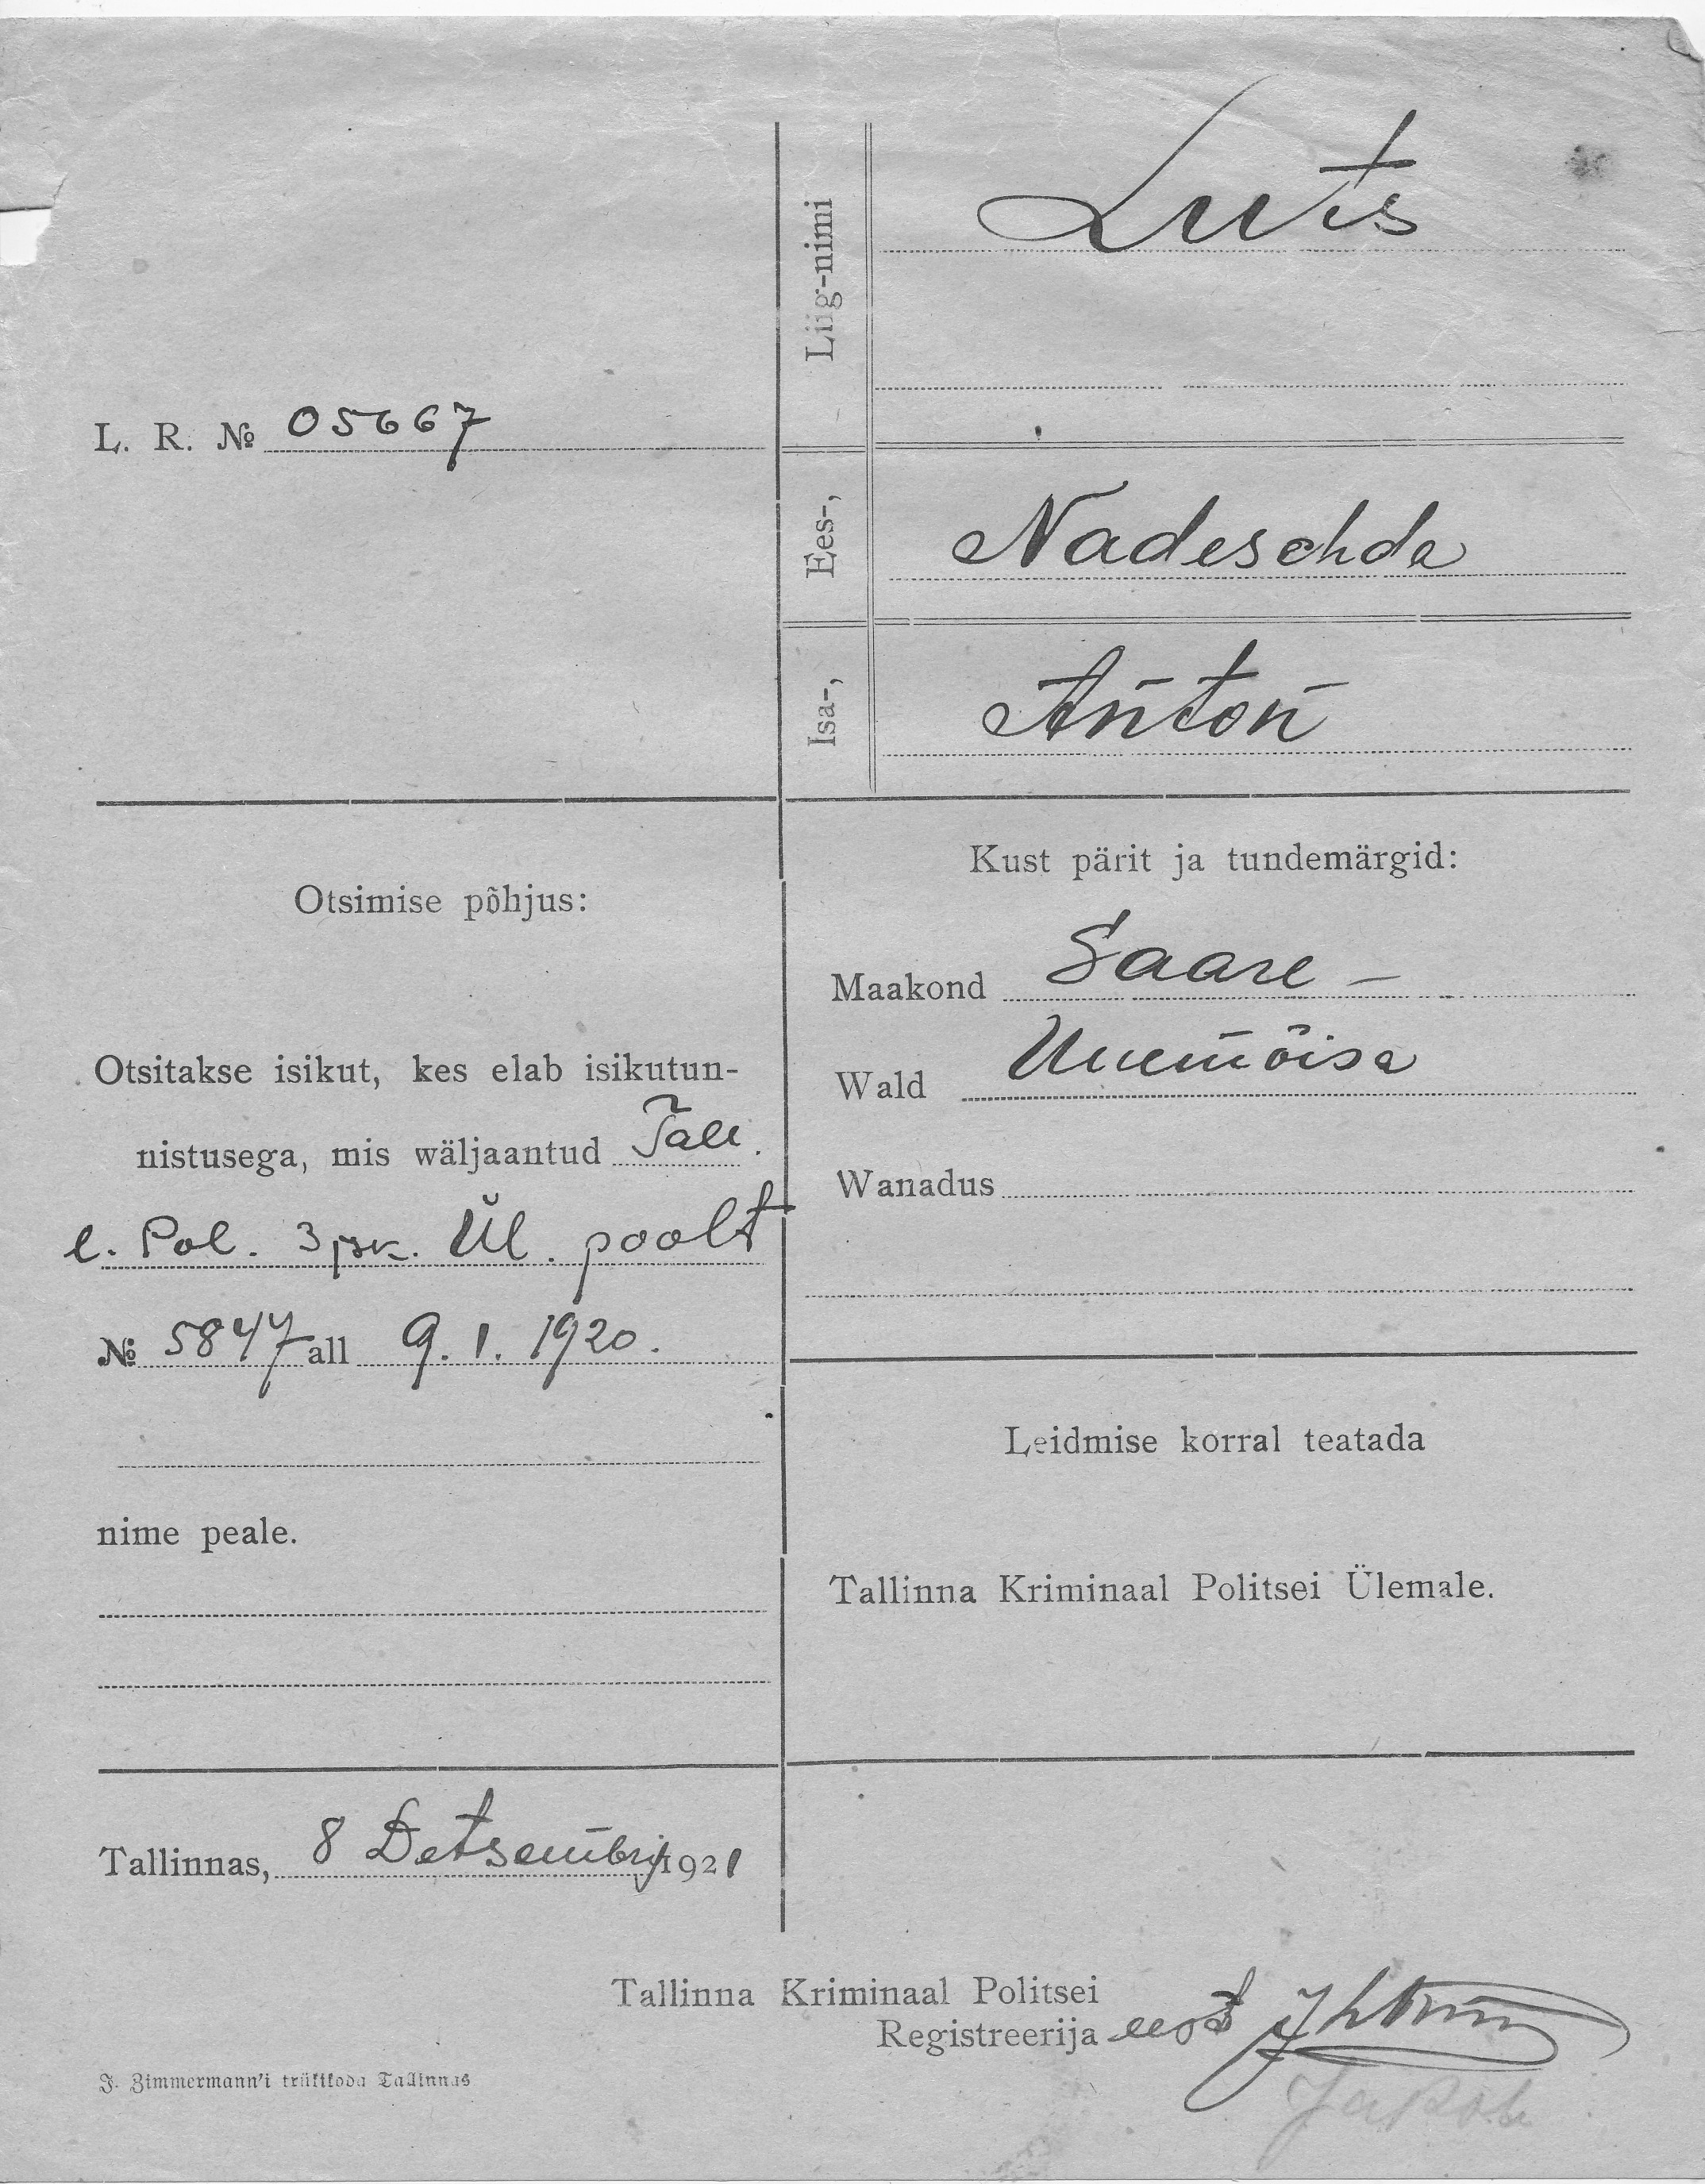 L. R. № 05667
Liig-nimi Luts
Ees-, Nadeschda
Isa-, Anton
Otsimise põhjus:
Otsitakse isikut, kes elab isikutun-
nistusega, mis wäljaantud Tall.
l. Pol. 3 jsk. Ül. poolt
№ 5847 all 9. 1. 1920.
nime peale.
Kust pärit ja tundemärgid:
Maakond Saare -
Wald Uuemõisa
Wanadus
Leidmise korral teatada
Tallinna Kriminaal Politsei Ülemale.
Tallinnas, 8 Detsembril 1921
Tallinna Kriminaal Politsei
Registreerija eest
J. Zimmermann'i trükikoda Tallinnas